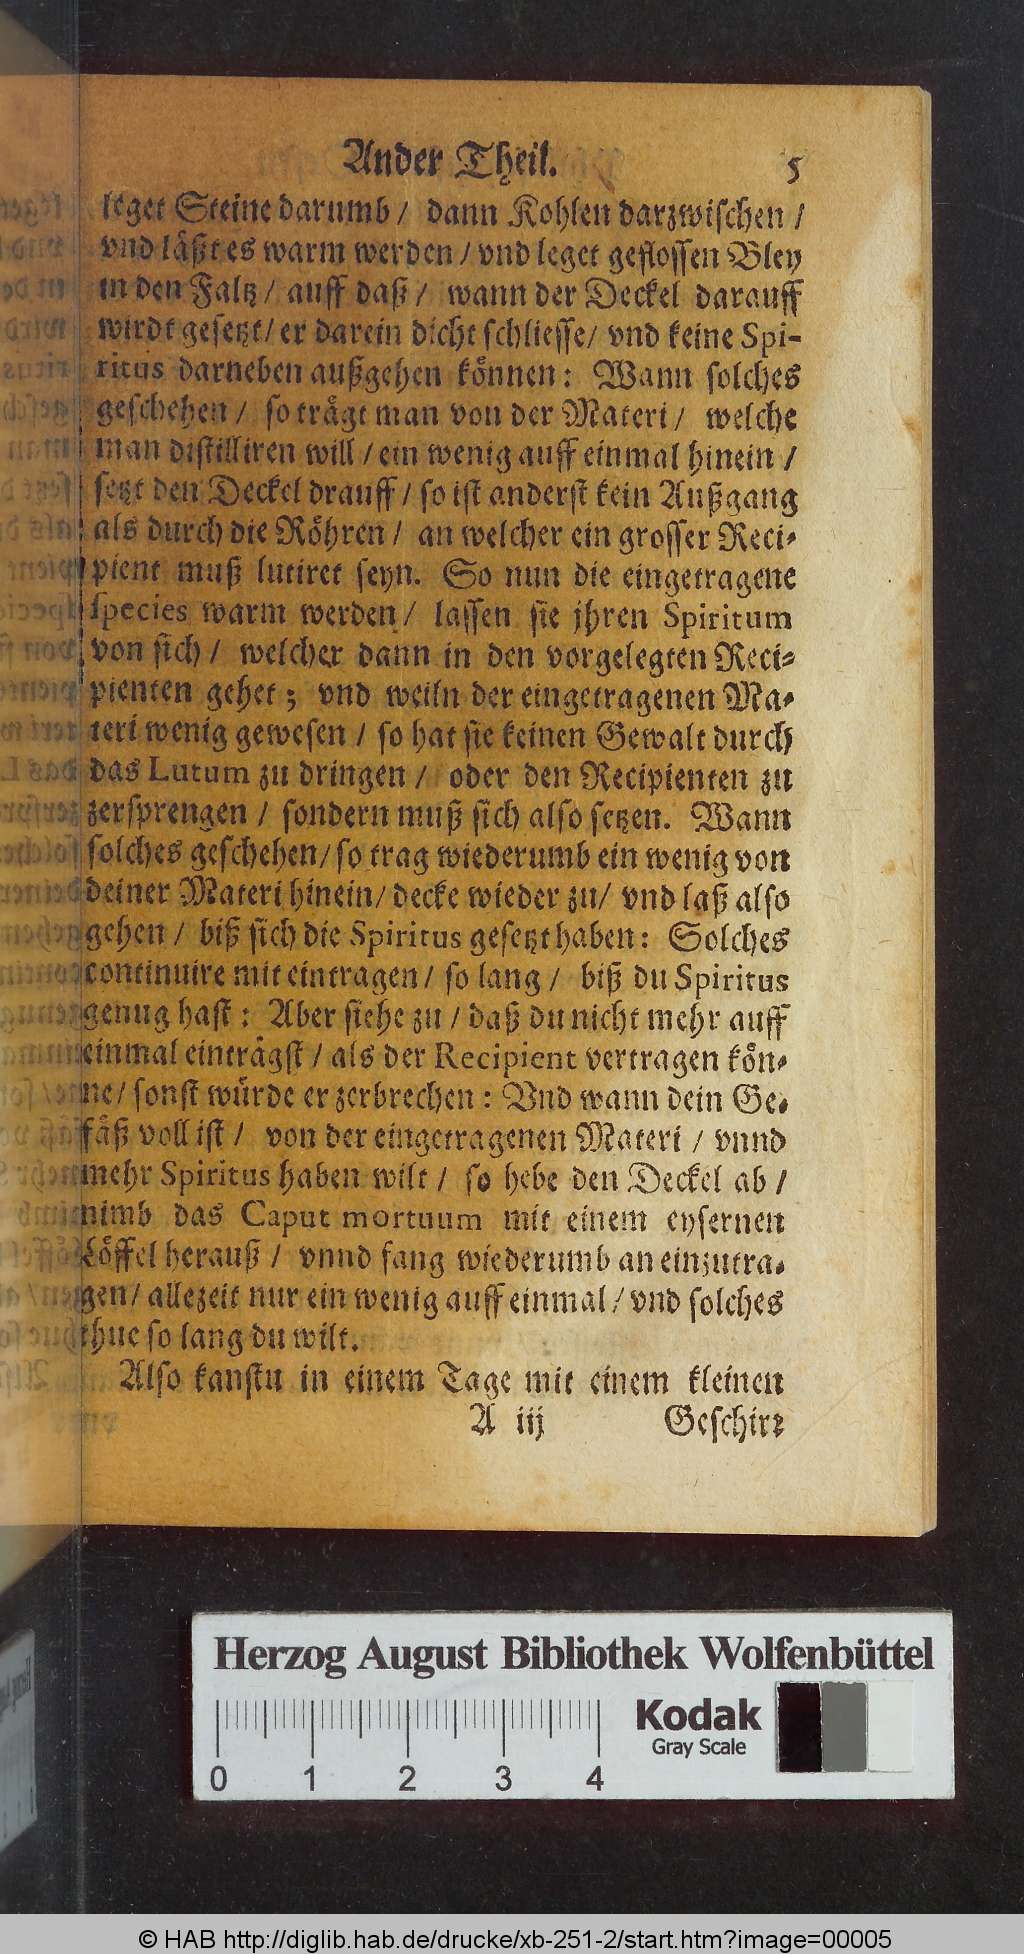 Ander Theil. 5
leget Steine darumb / dann Kohlen darzwischen /
vnd läßt es warm werden / vnd leget geflossen Bley
in den Faltz / auff daß / wann der Deckel darauff
wirdt gesetzt / er darein dicht schliesse / vnd keine Spi-
ritus darneben außgehen können: Wann solches
geschehen / so trägt man von der Materi / welche
man distilliren will / ein wenig auff einmal hinein /
setzt den Deckel drauff / so ist anderst kein Außgang
als durch die Röhren / an welcher ein grosser Reci-
pient muß lutiret seyn. So nun die eingetragene
species warm werden / lassen sie jhren Spiritum
von sich / welcher dann in den vorgelegten Reci-
pienten gehet; vnd weiln der eingetragenen Ma-
teri wenig gewesen / so hat sie keinen Gewalt durch
das Lutum zu dringen / oder den Recipienten zu
zersprengen / sondern muß sich also setzen. Wann
solches geschehen / so trag wiederumb ein wenig von
deiner Materi hinein / decke wieder zu / vnd laß also
gehen / biß sich die Spiritus gesetzt haben: Solches
continuire mit eintragen / so lang / biß du Spiritus
genug hast: Aber siehe zu / daß du nicht mehr auff
einmal einträgst / als der Recipient vertragen kön-
ne / sonst würde er zerbrechen: Vnd wann dein Ge-
fäß voll ist / von der eingetragenen Materi / vnnd
mehr Spiritus haben wilt / so hebe den Deckel ab /
nimb das Caput mortuum mit einem eysernen
Löffel herauß / vnnd fang wiederumb an einzutra-
gen / allezeit nur ein wenig auff einmal / vnd solches
thue so lang du wilt.
Also kanstu in einem Tage mit einem kleinen
A iij Geschirz
Herzog August Bibliothek Wolfenbüttel
Kodak
Gray Scale
0 1 2 3 4
© HAB http://diglib.hab.de/drucke/xb-251-2/start.htm?image=00005